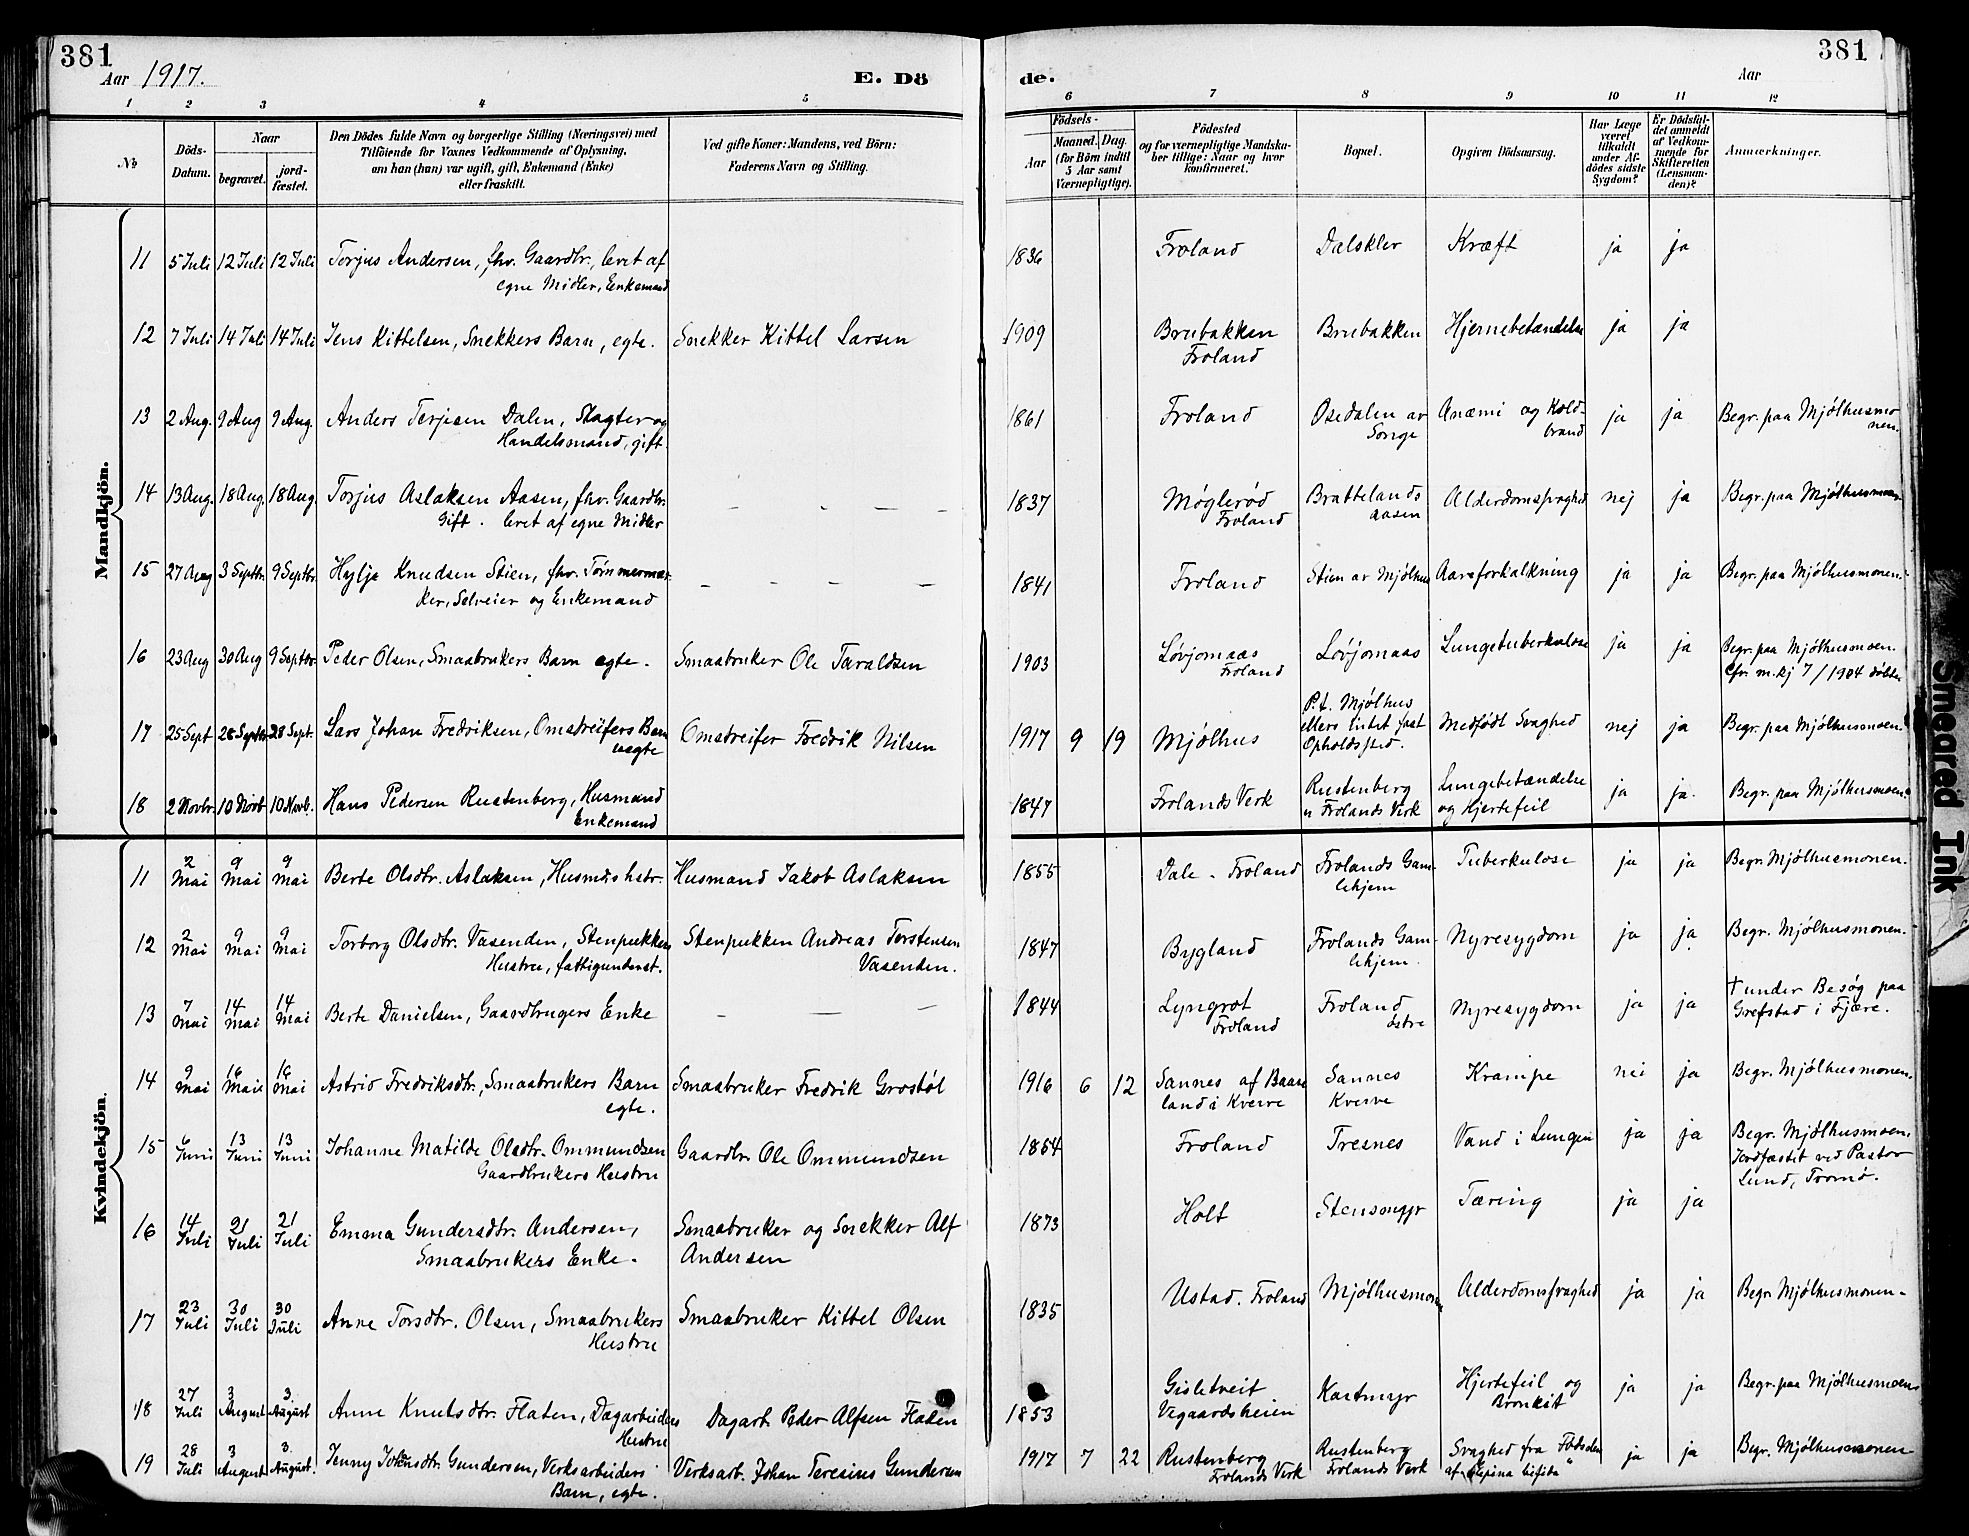 381
Aar 1917.
E. Dö
de.
Aar
381
1 2 3 4 5 6 7 8 9 10 11 12
№
Döds-Datum.
Naar
begravet.
jord-fæstet.
Den Dödes fulde Navn og borgerlige Stilling (Næringsvei) med
Tilföiende for Voxnes Vedkommende af Oplysning,
om han (hun) var ugift, gift, Enkemand (Enke)
eller fraskilt.
Ved gifte Koner: Mandens, ved Börn:
Faderens Navn og Stilling.
Födsels-
Aar
Maaned. Dag.
(for Börn indtil
5 Aar samt
Værnepligtige).
Födested
og for værnepligtige Mandska-
ber tillige: Naar og hvor
konfirmeret.
Bopæl.
Opgiven Dödsaarsag.
Har Læge
været
tilkaldt
under Af-
dödes sidste
Sygdom?
Er Dödsfal-
det anmeldt
af Vedkom-
mende for
Skifteretten
(Lensman-
den)?
Anmærkninger.
Mandkjön.
11 5 Juli 12 Juli 12 Juli Torjus Andersen, fhv. Gaardbr., levet af 1836 Froland Dalskler Kræft ja ja
egne Midler, Enkemand
12 7 Juli 14 Juli 14 Juli Jens Kittelsen, Snekkers Barn, egte. Snekker Kittel Larsen 1909 Brubakken Brubakken Hjernebetændelse ja ja
Froland
13 2 Aug. 9 Aug 9 Aug. Anders Terjesen Dalen, Slagter og 1861 Froland Osedalen av Anæmi og Kold- ja ja Begr. paa Mjölhusmo
Handelsmand, gift. Songe brand nen.
14 13 Aug. 18 Aug. 18 Aug. Torjus Aslaksen Aasen, fhv. Gaardbr. - - - - 1837 Möglerød Brattelands Alderdomssvaghed nej ja Begr. paa Mjölhusmoen
Gift. levet af egne Midler Froland aasen
15 27 Aug 3 Septbr. 9 Septbr. Hylje Knudsen Stien, fhv. Tömmermær- - - - - 1841 Froland Stien av Mjölhus Aareforkalkning ja ja Begr. paa Mjölhusmonen.
ker, Selveier og Enkemand
16 23 Aug 30 Aug 9 Septbr. Peder Olsen, Smaabrukers Barn egte. Smaabruker Ole Taraldsen 1903 Løvjomaas Løvjomaas Lungetuberkulose ja ja Begr. paa Mjölhusmoen.
Froland Cfr. m.kj 7/1904 döbte
17 25 Sept 28 Septbr 28 Sept. Lars Johan Fredriksen, Omstreifers Barn Omstreifer Fredrik Nilsen 1917 9 19 Mjölhus P.t. Mjölhus Medfödt Svaghed nej ja Begr. paa Mjölhusmoen.
uegte ellers intet fast
Opholdssted.
18 2 Novbr. 10 Novb 10 Novb. Hans Pedersen Rustenberg, Husmand 1847 Frolands Verk Rustenberg Lungebetændelse ja ja. Begr. paa Mjölhusmoen.
Enkemand u Frolands Verk og Hjertefeil
Kvindekjön.
11 2 Mai 9 Mai 9 Mai Berte Olsdtr. Aslaksen, Husmds hstr. Husmand Jakob Aslaksen 1855 Dale. Froland Frolands Gam- Tuberkulose ja ja Begr. Mjölhusmonen.
lehjem
12 2 Mai 9 Mai 9 Mai Torborg Olsdtr. Vasenden, Stenpukkers Stenpukken Andreas Terstensen 1847 Bygland Frolands Gam- Nyresygdom ja ja Begr. Mjölhusmonen.
Hustru, fattigunderst. Vasenden. lehjem.
13 7 Mai 14 Mai 14 Mai Berte Danielsen, Gaardbrugers Enke - - - 1844 Lyngrot Froland Nyresygdom ja ja † under Besög paa
Froland östre Grefstad i Fjære.
14 9 Mai 16 Mai 16 Mai Astrid Fredriksdtr., Smaabrukers Barn Smaabruker Fredrik Grostöl 1916 6 12 Sannes af Baase Sannes Krampe nei ja Begr. Mjölhusmonen.
egte. land i Kverve Kverve
15 6 Juni 13 Juni 13 Juni Johanne Matilde Olsdtr. Ommundsen Gaardbr. Ole Ommundsen 1854 Froland Tresnes Vand i Lungen ja ja Begr. Mjölhusmoen.
Gaardbrukers Hustru Jordfæstet ved Pastor
Lund, Tromö.
16 14 Juli 21 Juli 21 Juli Emma Gundersdtr. Andersen, Smaabruker og Snekker Alf 1873 Holt Stensmyr Tæring ja ja
Smaabrukers Enke. Andersen
17 23 Juli 30 Juli 30 Juli Anne Torsdtr. Olsen, Smaabrukers Smaabruker Kittel Olsen 1835 Ustad. Froland Mjölhusmonen Alderdomssvaghed ja ja Begr Mjölhusmonen-
Hustru
18 27 Juli 3 August 3. August Anne Knutsdtr. Flaten, Dagarbeiders Dagarb. Peder Alfsen Flaten 1853 Gisletveit Kastmyr Hjertefeil og ja ja Begr. paa Mjölhusmoen
Hustru Vegaardsheien Bronkit
19 28 Juli 3 August 3. August. Jenny Johansdtr. Gundersen, Verksarbeiders Verksarb. Johan Teresius Gundersen 1917 7 22 Rustenberg Rustenberg Svaghed fra Födselen ja ja Begr. Mjölhusmonen
Barn, egte. Frolands Verk Frolands Verk af "spina bifida"
Smeared Ink